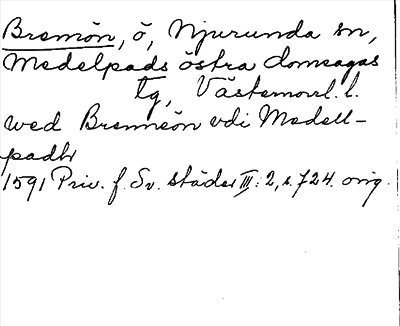 Bremön, ö, Njurunda sn,
Medelpads östra domsagas
tg, Västernorrl. l.
wed Bremmeön vdi Medell-
padh
1591 Priv. f. Sv. städer III: 2, s. 724. orig.